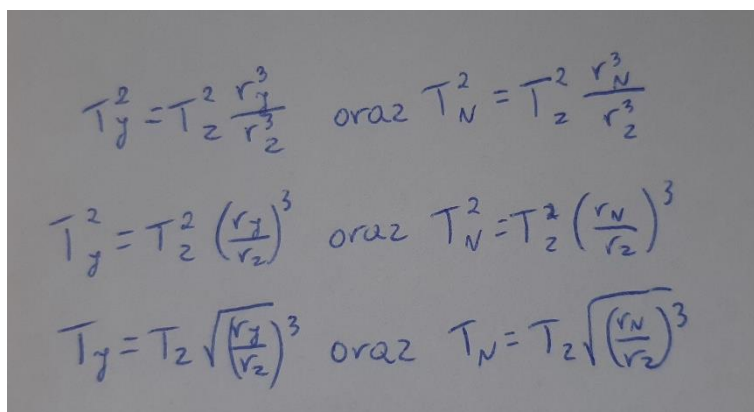 T_y^2 = T_z^2 \frac{r_y^3}{r_z^3} oraz T_N^2 = T_z^2 \frac{r_N^3}{r_z^3}
T_y^2 = T_z^2 \left(\frac{r_y}{r_z}\right)^3 oraz T_N^2 = T_z^2 \left(\frac{r_N}{r_z}\right)^3
T_y = T_z \sqrt{\left(\frac{r_y}{r_z}\right)}^3 oraz T_N = T_z \sqrt{\left(\frac{r_N}{r_z}\right)^3}